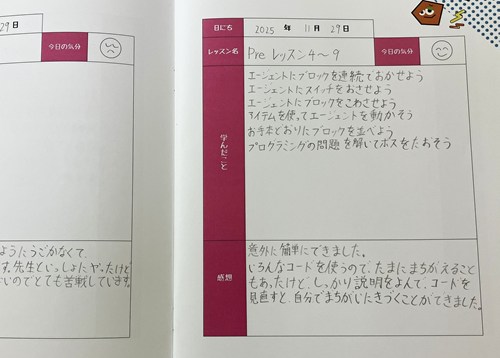 29日
今日の気分
ようにうごかなくて、
す。先生といっしょにやったけど
いのでとても苦戦しています。
日にち
2025 年 11月 29日
レッスン名
Pre レッスン4〜9
今日の気分
学んだこと
エージェントにブロックを連続でおかせよう
エージェントにスイッチをおさせよう
エージェントにブロックをこわさせよう
アイテムを使ってエージェントを動かそう
お手本どおりにブロックを並べよう
プログラミングの問題を解いてボスをたおそう
感想
意外に簡単にできました。
いろんなコードを使うので、たまにまちがえること
もあったけど、しっかり説明をよんで、コードを
見直すと、自分でまちがいにきづくことができました。